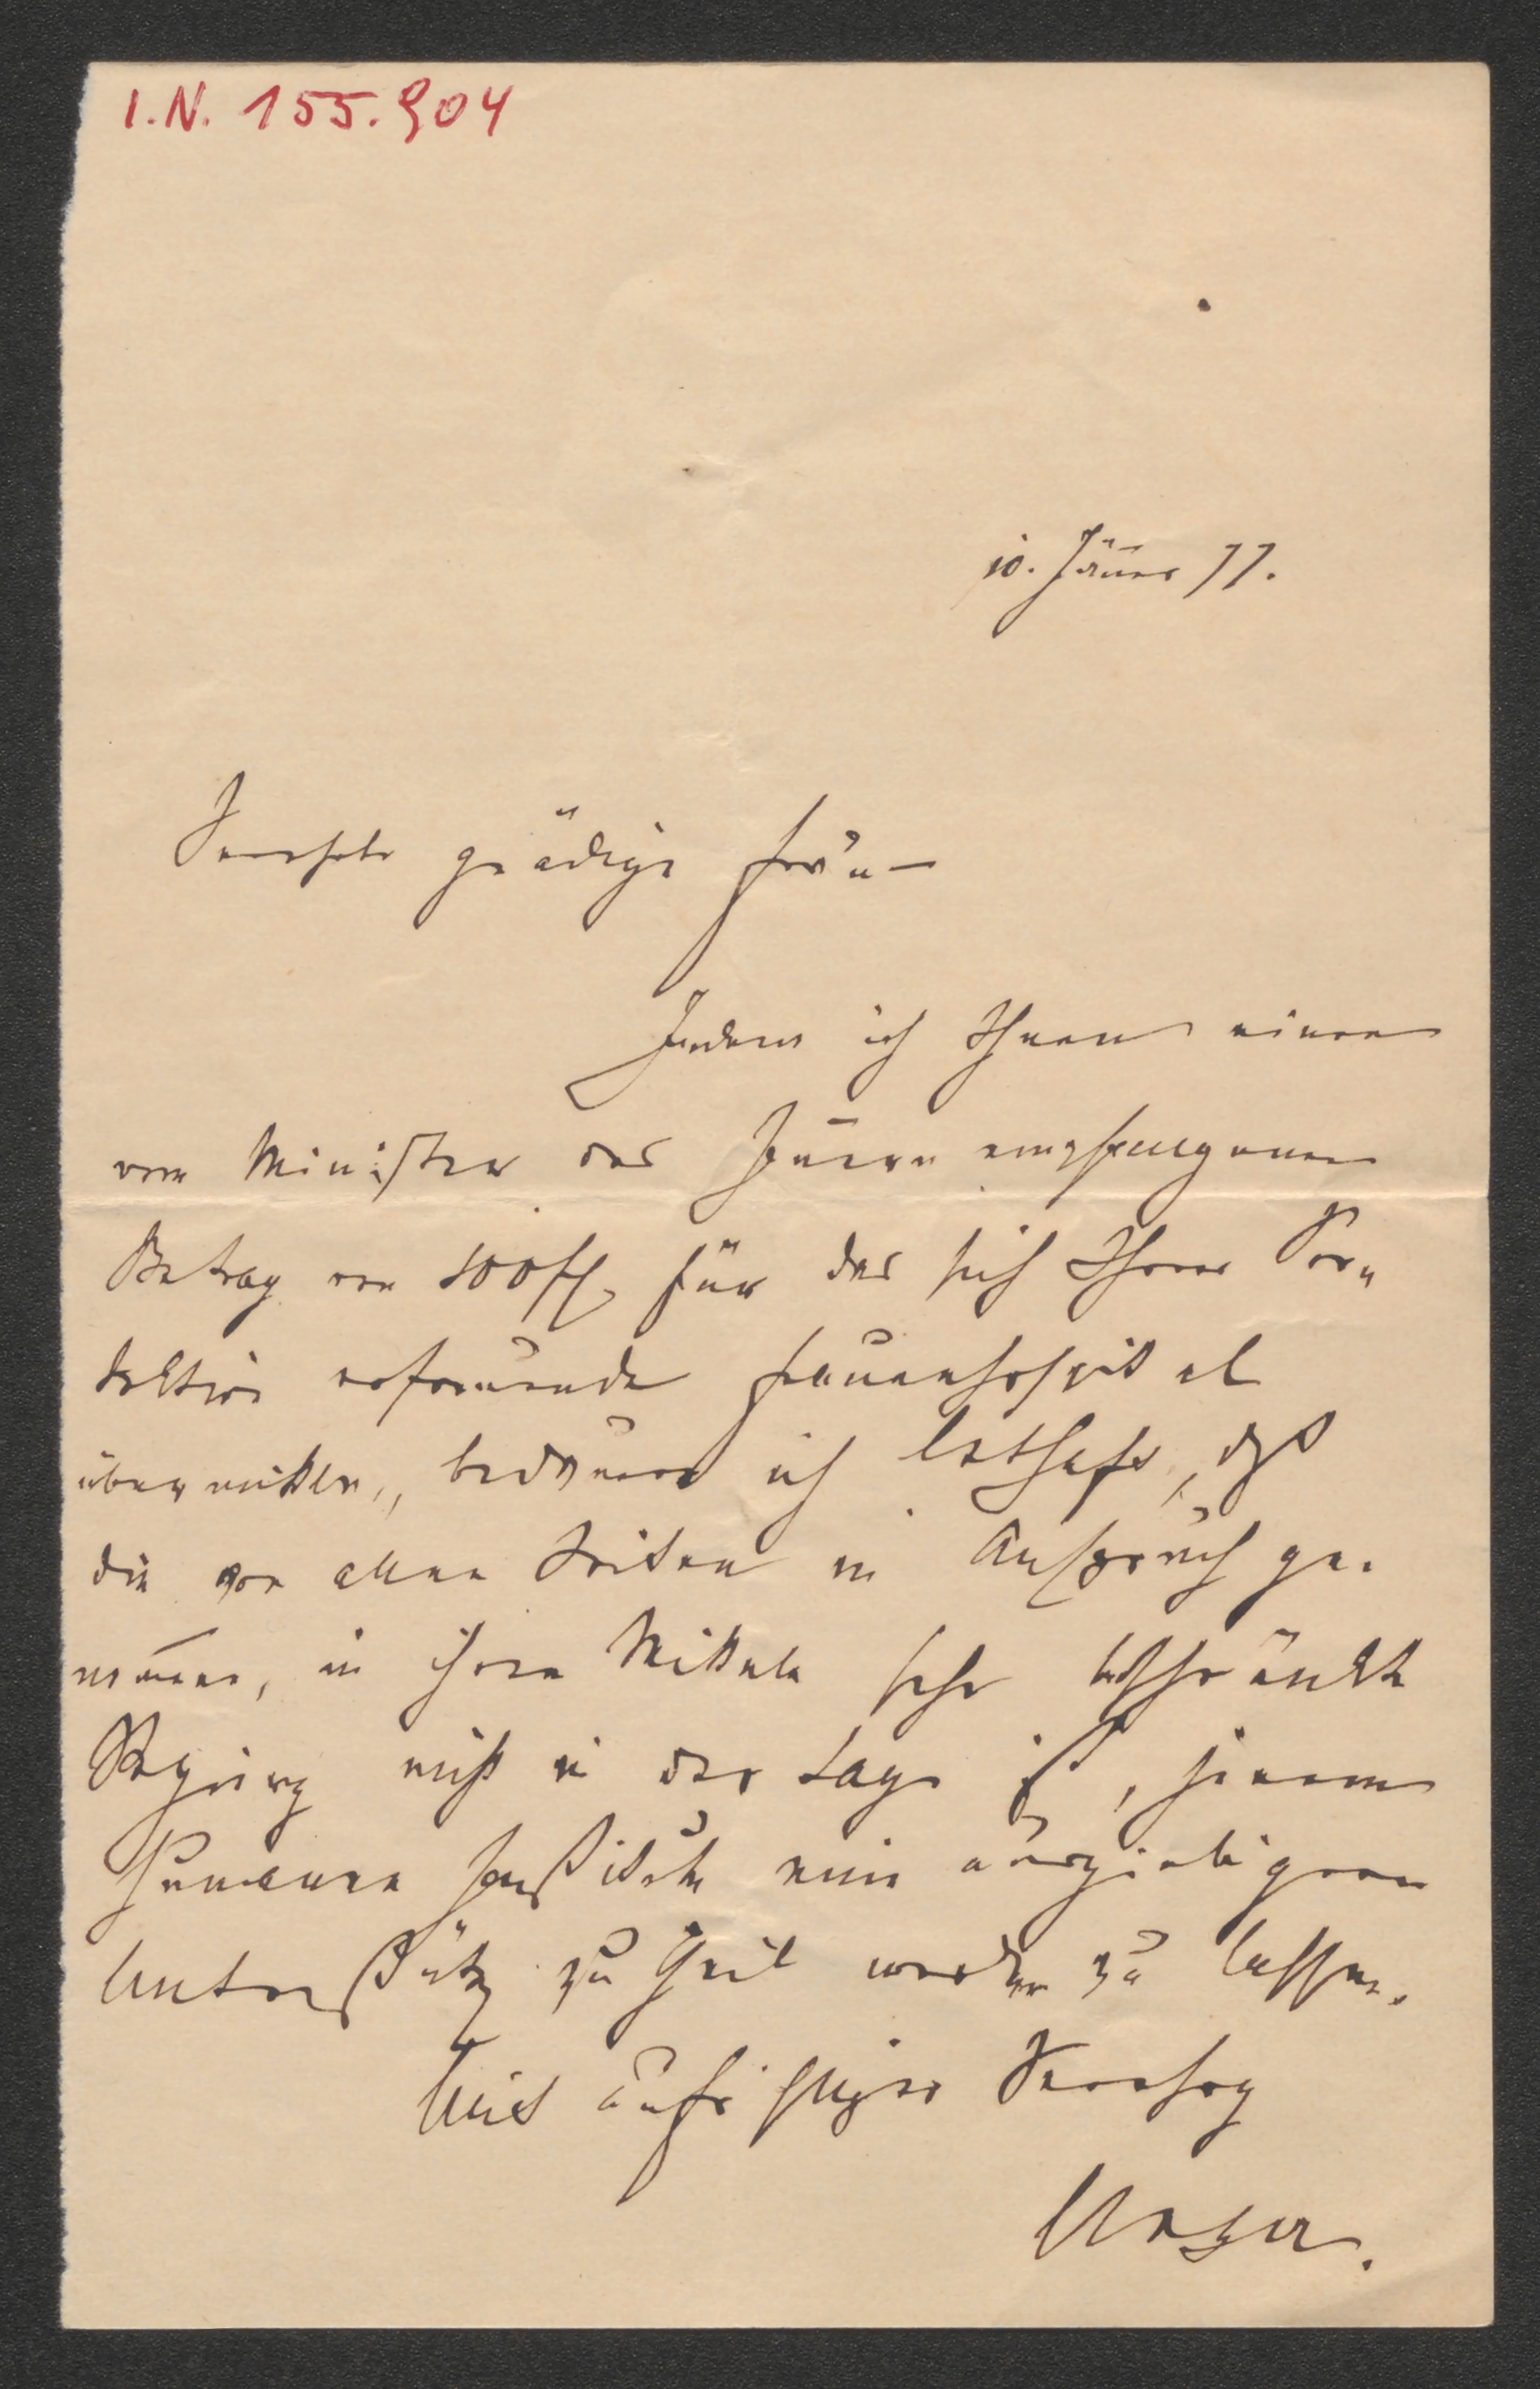 I.N. 155.904
10. Jänner 77.
Verehrte gnädige Frau
Indem ich Ihnen einen
vom Minister des Innern empfangenen
Betrag von 100 fl. für das sich Ihrer Pro-
tektion erfreuende Frauenhospital
übermittle, bedauere ich lebhaft, daß
die von allen Seiten in Anspruch ge-
nommene, in ihren Mitteln sehr beschränkte
Regierung nicht in der Lage ist, jenem
humanen Institute eine ausgiebigere
Unterstützg zu Theil werden zu lassen.
Mit aufrichtiger Verehrg
Unger.